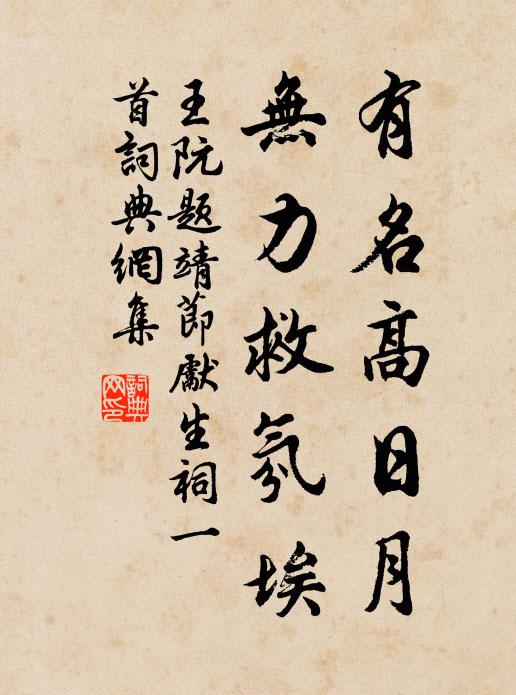 有名高日月
無力救氛埃
王阮题靖節獻生祠一
首詞典網集
詞典
网印